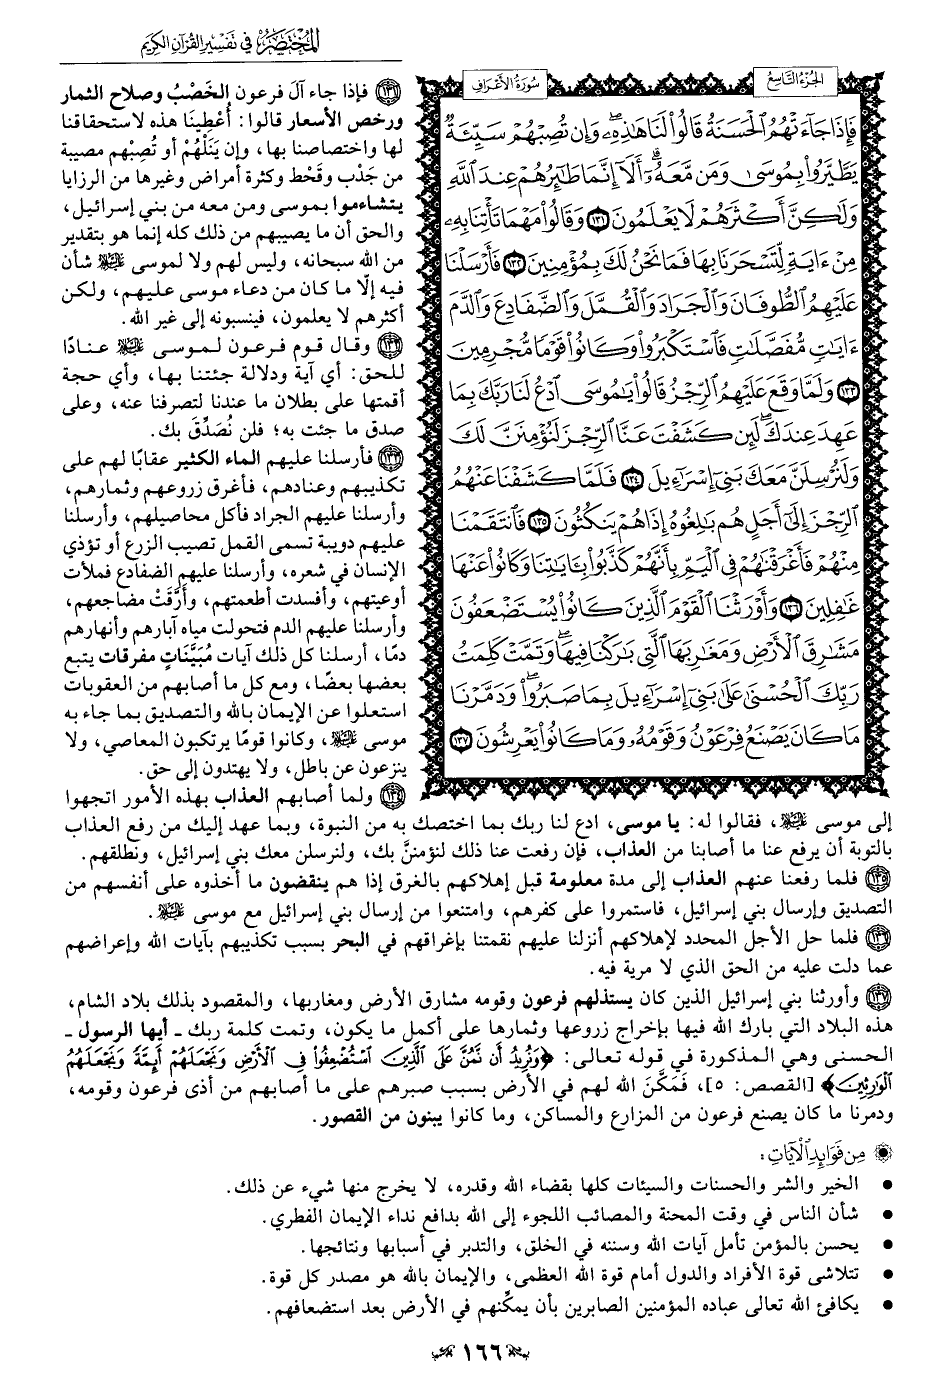 المختصر في تفسير القرآن الكريم
الجزء التاسع
سورة الأعراف
فَإِذَا جَاءَتْهُمُ الْحَسَنَةُ قَالُوا لَنَا هَٰذِهِ ۖ وَإِن تُصِبْهُمْ سَيِّئَةٌ
يَطَّيَّرُوا بِمُوسَىٰ وَمَن مَّعَهُ ۗ أَلَا إِنَّمَا طَائِرُهُمْ عِندَ اللَّهِ
وَلَٰكِنَّ أَكْثَرَهُمْ لَا يَعْلَمُونَ ١٣١ وَقَالُوا مَهْمَا تَأْتِنَا بِهِ
مِنْ ءَايَةٍ لِّتَسْحَرَنَا بِهَا فَمَا نَحْنُ لَكَ بِمُؤْمِنِينَ ١٣٢ فَأَرْسَلْنَا
عَلَيْهِمُ الطُّوفَانَ وَالْجَرَادَ وَالْقُمَّلَ وَالضَّفَادِعَ وَالدَّمَ
ءَايَاتٍ مُّفَصَّلَاتٍ فَاسْتَكْبَرُوا وَكَانُوا قَوْمًا مُّجْرِمِينَ
١٣٣ وَلَمَّا وَقَعَ عَلَيْهِمُ الرِّجْزُ قَالُوا يَامُوسَى ادْعُ لَنَا رَبَّكَ بِمَا
عَهِدَ عِندَكَ ۖ لَئِن كَشَفْتَ عَنَّا الرِّجْزَ لَنُؤْمِنَنَّ لَكَ
وَلَنُرْسِلَنَّ مَعَكَ بَنِي إِسْرَاءِيلَ ١٣٤ فَلَمَّا كَشَفْنَا عَنْهُمُ
الرِّجْزَ إِلَىٰ أَجَلٍ هُم بَالِغُوهُ إِذَا هُمْ يَنكُثُونَ ١٣٥ فَانتَقَمْنَا
مِنْهُمْ فَأَغْرَقْنَاهُمْ فِي الْيَمِّ بِأَنَّهُمْ كَذَّبُوا بِـَٔايَاتِنَا وَكَانُوا عَنْهَا
غَافِلِينَ ١٣٦ وَأَوْرَثْنَا الْقَوْمَ الَّذِينَ كَانُوا يُسْتَضْعَفُونَ
مَشَارِقَ الْأَرْضِ وَمَغَارِبَهَا الَّتِي بَارَكْنَا فِيهَا ۖ وَتَمَّتْ كَلِمَتُ
رَبِّكَ الْحُسْنَىٰ عَلَىٰ بَنِي إِسْرَاءِيلَ بِمَا صَبَرُوا ۖ وَدَمَّرْنَا
مَا كَانَ يَصْنَعُ فِرْعَوْنُ وَقَوْمُهُ وَمَا كَانُوا يَعْرِشُونَ ١٣٧
١٣١ فإذا جاء آل فرعون الخَصْبُ وصلاح الثمار
ورخص الأسعار قالوا: أُعْطِينَا هذه لاستحقاقنا
لها واختصاصنا بها، وإن يَنَلْهُمْ أو تُصِبْهم مصيبة
من جَدْب وقَحْط وكثرة أمراض وغيرها من الرزايا
يتشاءموا بموسى ومن معه من بني إسرائيل،
والحق أن ما يصيبهم من ذلك كله إنما هو بتقدير
من الله سبحانه، وليس لهم ولا لموسى عليه السلام شأن
فيه إلّا ما كان من دعاء موسى عليهم، ولكن
أكثرهم لا يعلمون، فينسبونه إلى غير الله.
١٣٢ وقال قوم فرعون لموسى عليه السلام عنادًا
للحق: أي آية ودلالة جئتنا بها، وأي حجة
أقمتها على بطلان ما عندنا لتصرفنا عنه، وعلى
صدق ما جئت به؛ فلن نُصَدِّقَ بك.
١٣٣ فأرسلنا عليهم الماء الكثير عقابًا لهم على
تكذيبهم وعنادهم، فأغرق زروعهم وثمارهم،
وأرسلنا عليهم الجراد فأكل محاصيلهم، وأرسلنا
عليهم دويبة تسمى القمل تصيب الزرع أو تؤذي
الإنسان في شعره، وأرسلنا عليهم الضفادع فملأت
أوعيتهم، وأفسدت أطعمتهم، وأَرَّقَتْ مضاجعهم،
وأرسلنا عليهم الدم فتحولت مياه آبارهم وأنهارهم
دمًا، أرسلنا كل ذلك آيات مُبَيَّنَاتٍ مفرقات يتبع
بعضها بعضًا، ومع كل ما أصابهم من العقوبات
استعلوا عن الإيمان بالله والتصديق بما جاء به
موسى عليه السلام، وكانوا قومًا يرتكبون المعاصي، ولا
ينزعون عن باطل، ولا يهتدون إلى حق.
١٣٤ ولما أصابهم العذاب بهذه الأمور اتجهوا
إلى موسى عليه السلام، فقالوا له: يا موسى، ادع لنا ربك بما اختصك به من النبوة، وبما عهد إليك من رفع العذاب
بالتوبة أن يرفع عنا ما أصابنا من العذاب، فإن رفعت عنا ذلك لنؤمننَّ بك، ولنرسلن معك بني إسرائيل، ونطلقهم.
١٣٥ فلما رفعنا عنهم العذاب إلى مدة معلومة قبل إهلاكهم بالغرق إذا هم ينقضون ما أخذوه على أنفسهم من
التصديق وإرسال بني إسرائيل، فاستمروا على كفرهم، وامتنعوا من إرسال بني إسرائيل مع موسى عليه السلام.
١٣٦ فلما حل الأجل المحدد لإهلاكهم أنزلنا عليهم نقمتنا بإغراقهم في البحر بسبب تكذيبهم بآيات الله وإعراضهم
عما دلت عليه من الحق الذي لا مرية فيه.
١٣٧ وأورثنا بني إسرائيل الذين كان يستذلهم فرعون وقومه مشارق الأرض ومغاربها، والمقصود بذلك بلاد الشام،
هذه البلاد التي بارك الله فيها بإخراج زروعها وثمارها على أكمل ما يكون، وتمت كلمة ربك ـ أيها الرسول ـ
الحسنى وهي المذكورة في قوله تعالى: ﴿وَنُرِيدُ أَن نَّمُنَّ عَلَى الَّذِينَ اسْتُضْعِفُوا فِي الْأَرْضِ وَنَجْعَلَهُمْ أَئِمَّةً وَنَجْعَلَهُمُ
الْوَارِثِينَ﴾ [القصص: ٥]، فَمَكَّنَ الله لهم في الأرض بسبب صبرهم على ما أصابهم من أذى فرعون وقومه،
ودمرنا ما كان يصنع فرعون من المزارع والمساكن، وما كانوا يبنون من القصور.
من فوائد الآيات:
• الخير والشر والحسنات والسيئات كلها بقضاء الله وقدره، لا يخرج منها شيء عن ذلك.
• شأن الناس في وقت المحنة والمصائب اللجوء إلى الله بدافع نداء الإيمان الفطري.
• يحسن بالمؤمن تأمل آيات الله وسننه في الخلق، والتدبر في أسبابها ونتائجها.
• تتلاشى قوة الأفراد والدول أمام قوة الله العظمى، والإيمان بالله هو مصدر كل قوة.
• يكافئ الله تعالى عباده المؤمنين الصابرين بأن يمكِّنهم في الأرض بعد استضعافهم.
١٦٦